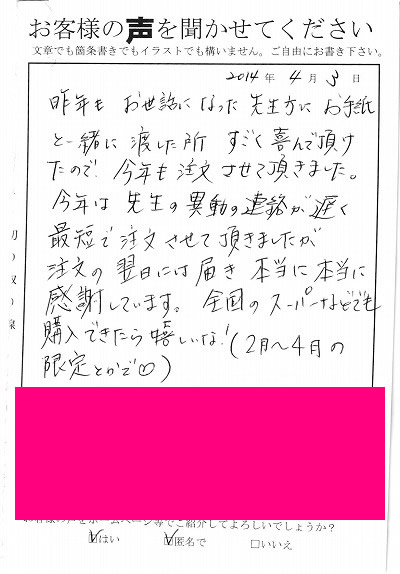 お客様の声を聞かせてください
文章でも箇条書きでもイラストでも構いません。ご自由にお書き下さい。
2014年 4月 3日
昨年も お世話になった先生方に お手紙
と一緒に渡した所 すごく喜んで頂け
たので 今年も注文させて頂きました。
今年は 先生の異動の連絡が遅く
最短で注文させて頂きましたが
注文の翌日には届き 本当に本当に
感謝しています。 全国のスーパーなどでも
購入できたら嬉しいな!(2月〜4月の
限定とかで)
お客様の声をホームページ等でご紹介してよろしいでしょうか?
はい 匿名で いいえ